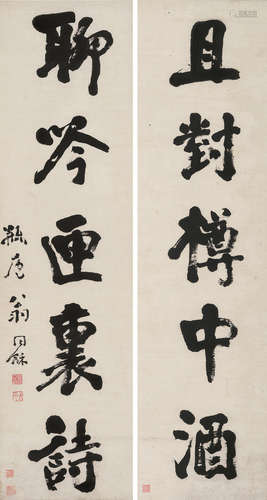 且對樽中酒
聊吟匣裏詩
瓶廬翁同龢